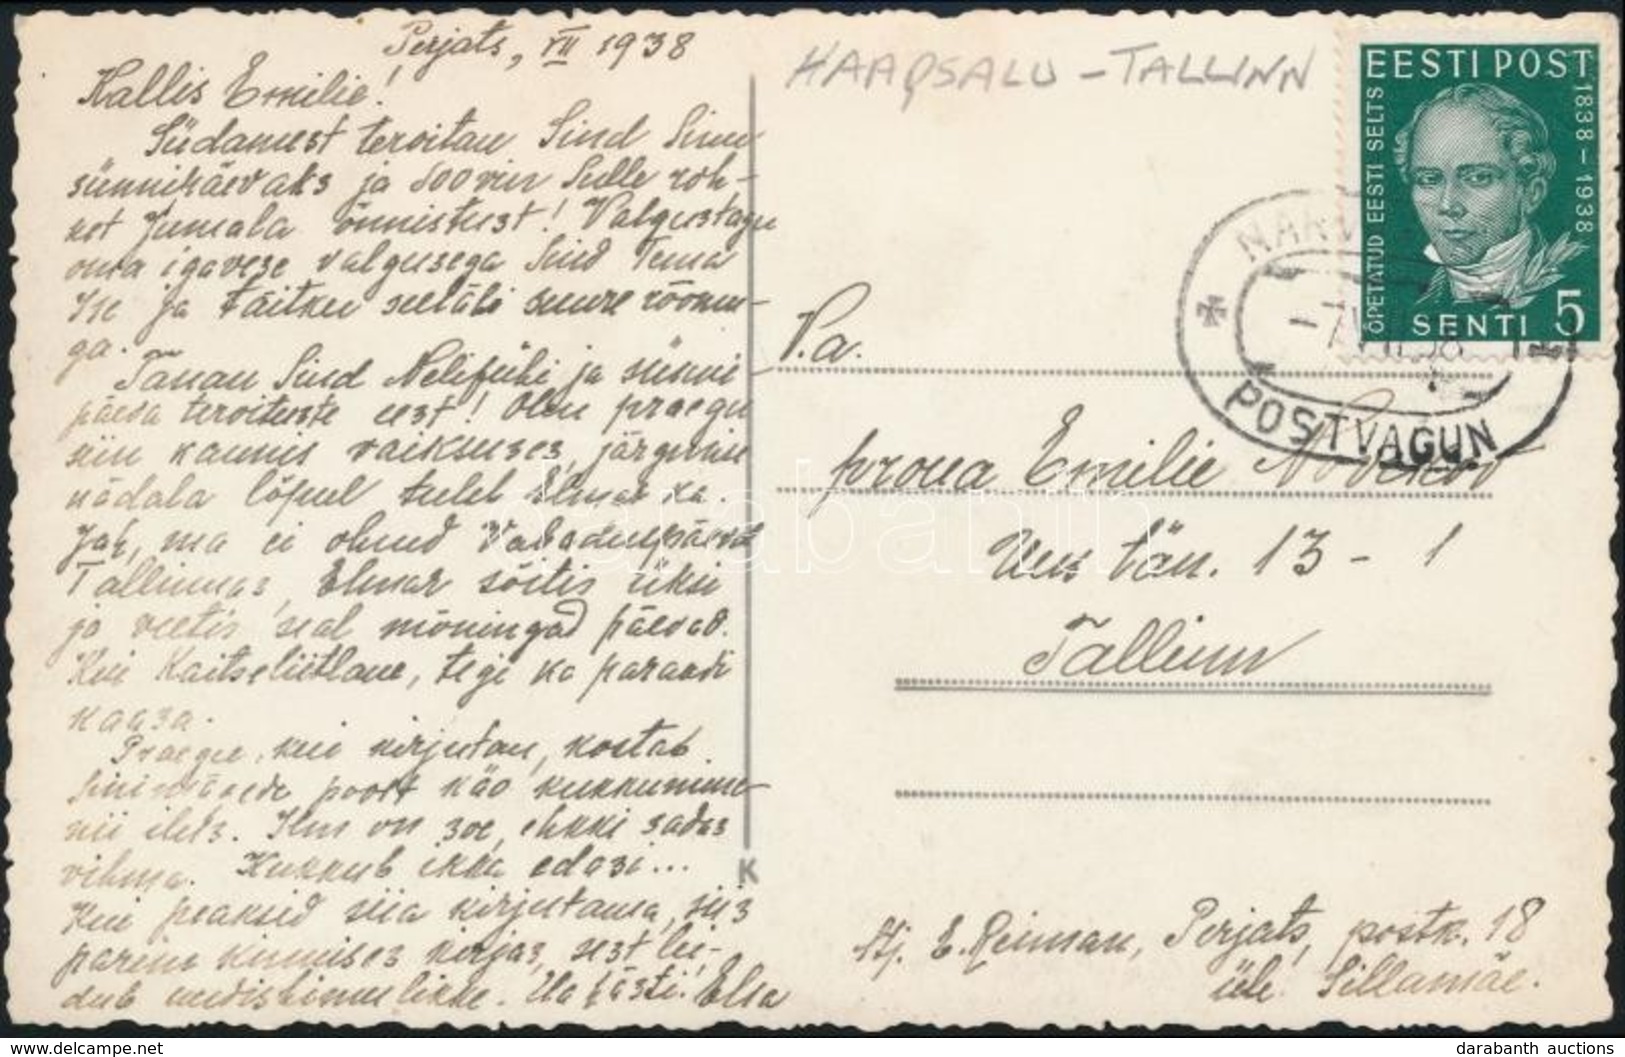 Perjats, VII 1938
Kallis Emilie!
Südamest tervitan Sind Sinu
sünnipäevaks ja soovin Sulle roh-
ket Jumala õnnistust! Valgustagu
oma igavese valgusega Sind Tema
Ise ja täitku seeläbi suure rõõmu-
ga.
Tänan Sind Nelipühi ja sünni-
päeva tervituste eest! Olen praegu
siin kaunis vaikuses, järgmise
nädala lõpul tuleb Elmar ka.
Jah, ma ei olnud Vabaduspäeval
Tallinnas, Elmar sõitis üksi
ja veetis seal mõningad päevad.
Kui Kaitseliitlane, tegi ka paraadi
kaasa.
Praegu, kui kirjutan, kostab
Sinimägede poolt käo kukkumine
nii ilus. Ilm on soe, ehkki sadas
vihma. Kukkub ikka edasi...
Kui peaksid siia kirjutama, siis
parem kinnises kirjas, sest lei-
dub uudishimulikke. Ela hästi! Elsa
HAAPSALU - TALLINN
EESTI POST
ÕPETATUD EESTI SELTS
1838-1938
SENTI 5
NARV
-7 VII 38
POSTVAGUN
V.a.
proua Emilie
Uus tän. 13 - 1
Tallinn
Ärj. E. Reiman, Perjats, postk. 18
üle Sillamäe.
K
darabanth
delcampe.net
darabanth auctions